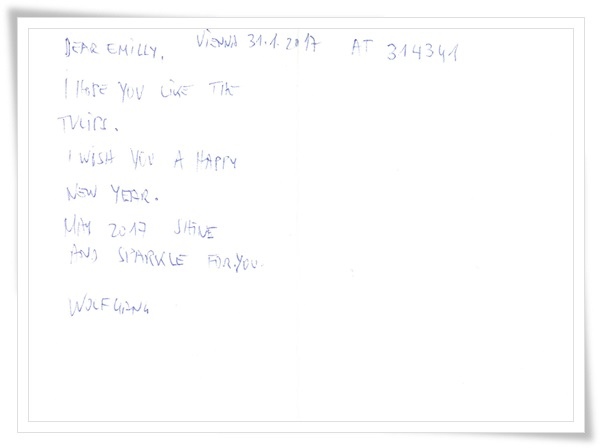 DEAR EMILLY, VIENNA 31.1.2017 AT 314341
I HOPE YOU LIKE THE
TULIPS.
I WISH YOU A HAPPY
NEW YEAR.
MAY 2017 SHINE
AND SPARKLE FOR YOU.
WOLFGANG